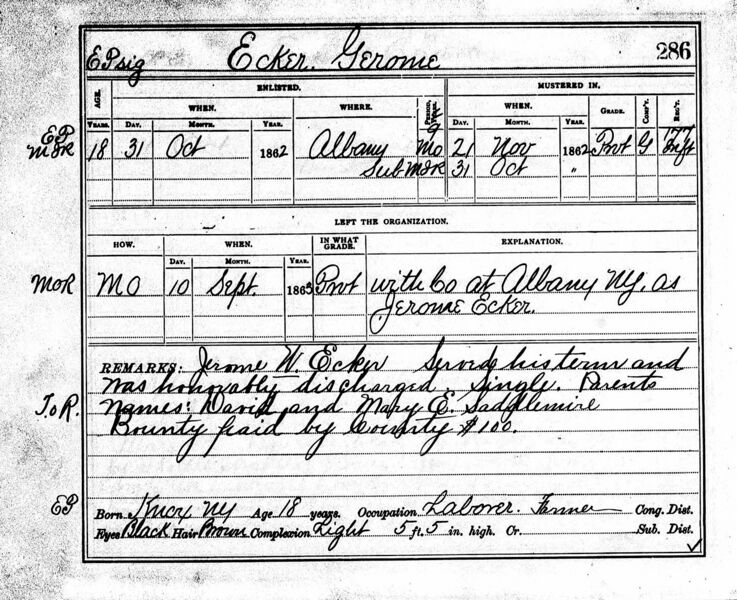 EP sig Ecker. Gerome 286
AGE. ENLISTED. MUSTERED IN.
WHEN. WHERE. PERIOD, YEARS. WHEN. GRADE. COMP'Y. REG'T.
YEARS. DAY. MONTH. YEAR. DAY. MONTH. YEAR.
EP 9 177
M&R 18 31 Oct 1862 Albany Mo 21 Nov 1862 Pvt G Inft
Sub M&R 31 Oct "
LEFT THE ORGANIZATION.
HOW. WHEN. IN WHAT GRADE. EXPLANATION.
DAY. MONTH. YEAR.
MOR MO 10 Sept. 1863 Pvt with Co at Albany NY. as
Jerome Ecker.
REMARKS: Jerome W. Ecker Served his term and
was honorably discharged. Single. Parents
T.o R. Names: David and Mary E. Saddlemire
Bounty paid by County $100.
EP Born Knox NY Age 18 years. Occupation Laborer. Farmer Cong. Dist.
Eyes Black Hair Brown Complexion Light 5 ft. 5 in. high. Cr. Sub. Dist.